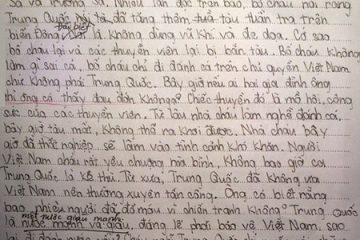 Sa và Trường Sa. Nhiều lần đọc trên báo, cháu
Trung Quốc hội tạ, đã tăng thêm tàu tuần tra trên
đặc biệt
biển Đông. là không dùng vũ khí và đe dọa. Cớ sao
bố cháu lại và các thuyền viên lại bị bắn tàu. Bố cháu không
làm gì sai cả, bố cháu chỉ đi đánh cá trên chủ quyền Việt Nam
chứ không phải Trung Quốc. Bây giờ nếu ai hại gia đình ông
thì ông có thấy đau đớn không? Chiếc thuyền đó là mồ hôi, công
sức của các thuyền viên. Từ lâu nhà cháu làm nghề đánh cá,
bây giờ tàu mất, không thể ra khơi được. Nhà cháu bây
giờ đã thất nghiệp sẽ lâm vào tình cảnh khó khăn. Người
Việt Nam cháu rất yêu chuộng hòa bình. Không bao giờ coi
Trung Quốc là kẻ thù. Từ xưa, Trung Quốc đã không ưa
Việt Nam nên thường xuyên tấn công. Ông có biết rằng
bao nhiêu người đã đổ máu vì chiến tranh không? Trung Quốc
một nước giàu mạnh
là nước mạnh và giàu, đáng lẽ phải bảo vệ Việt Nam, sao